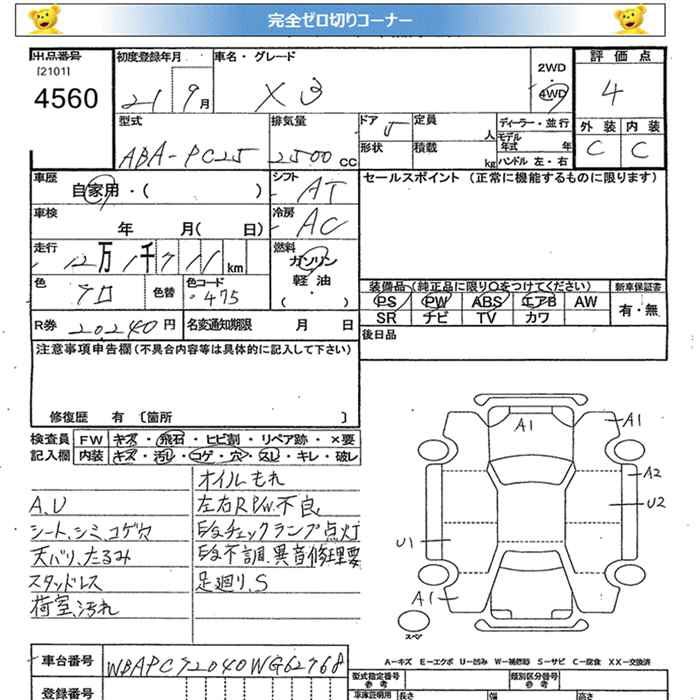 完全ゼロ切りコーナー
出品番号
[2101]
4560
初度登録年月
21 9月
車名・グレード
X3
2WD
・
4WD
評価点
4
外装 内装
C C
型式
ABA-PC25
排気量
2500cc
ドア 5
形状
定員 人
積載 kg
ディーラー・並行
モデル年式 年
ハンドル 左・右
車歴
自家用・( )
シフト
AT
セールスポイント(正常に機能するものに限ります)
車検
年 月( 日)
冷房
AC
走行
12万1千711km
燃料
ガソリン
軽油
・( )
色
クロ
色替
色コード
475
装備品(純正品に限り○をつけてください)
PS PW ABS エアB AW
SR ナビ TV カワ
新車保証書
有・無
R券 20240円
名変通知期限 月 日
後日品
注意事項申告欄(不具合内容等は具体的に記入して下さい)
修復歴 有 〔箇所 〕
検査員記入欄
FW キズ・飛石・ヒビ割・リペア跡・×要
内装 キズ・汚レ・コゲ・穴・スレ・キレ・破レ
オイルもれ
A.U
左右R P/W.不良
シート、シミ、コゲ穴
E/gチェックランプ点灯
天バリ、たるみ
E/g不調.異音修理要
スタッドレス
足廻り、S
荷室、汚れ
A1
A1
A2
U2
U1
A1
スペア
A-キズ E-エクボ U-凹み W-補修跡 S-サビ C-腐食 XX-交換済
車台番号
WBAPC72040WG62768
型式指定番号
参考
類別区分番号
参考
登録番号
車庫証明用
長さ
幅
高さ